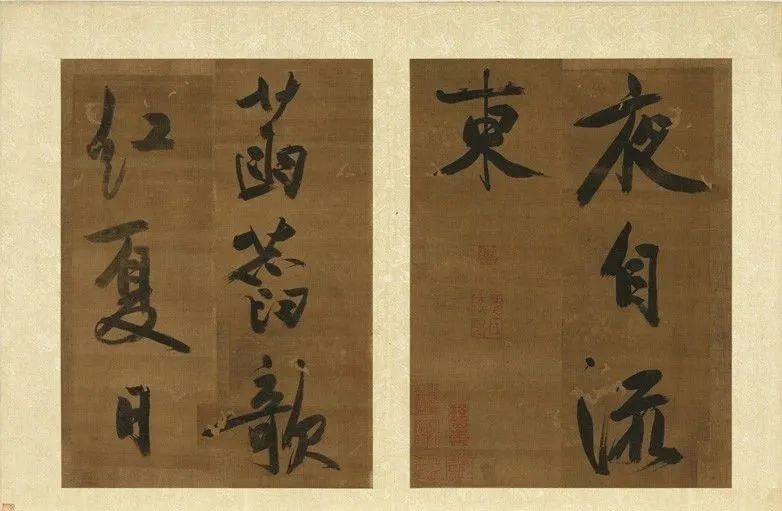 夜自流
東
菡萏欹
紅夏日